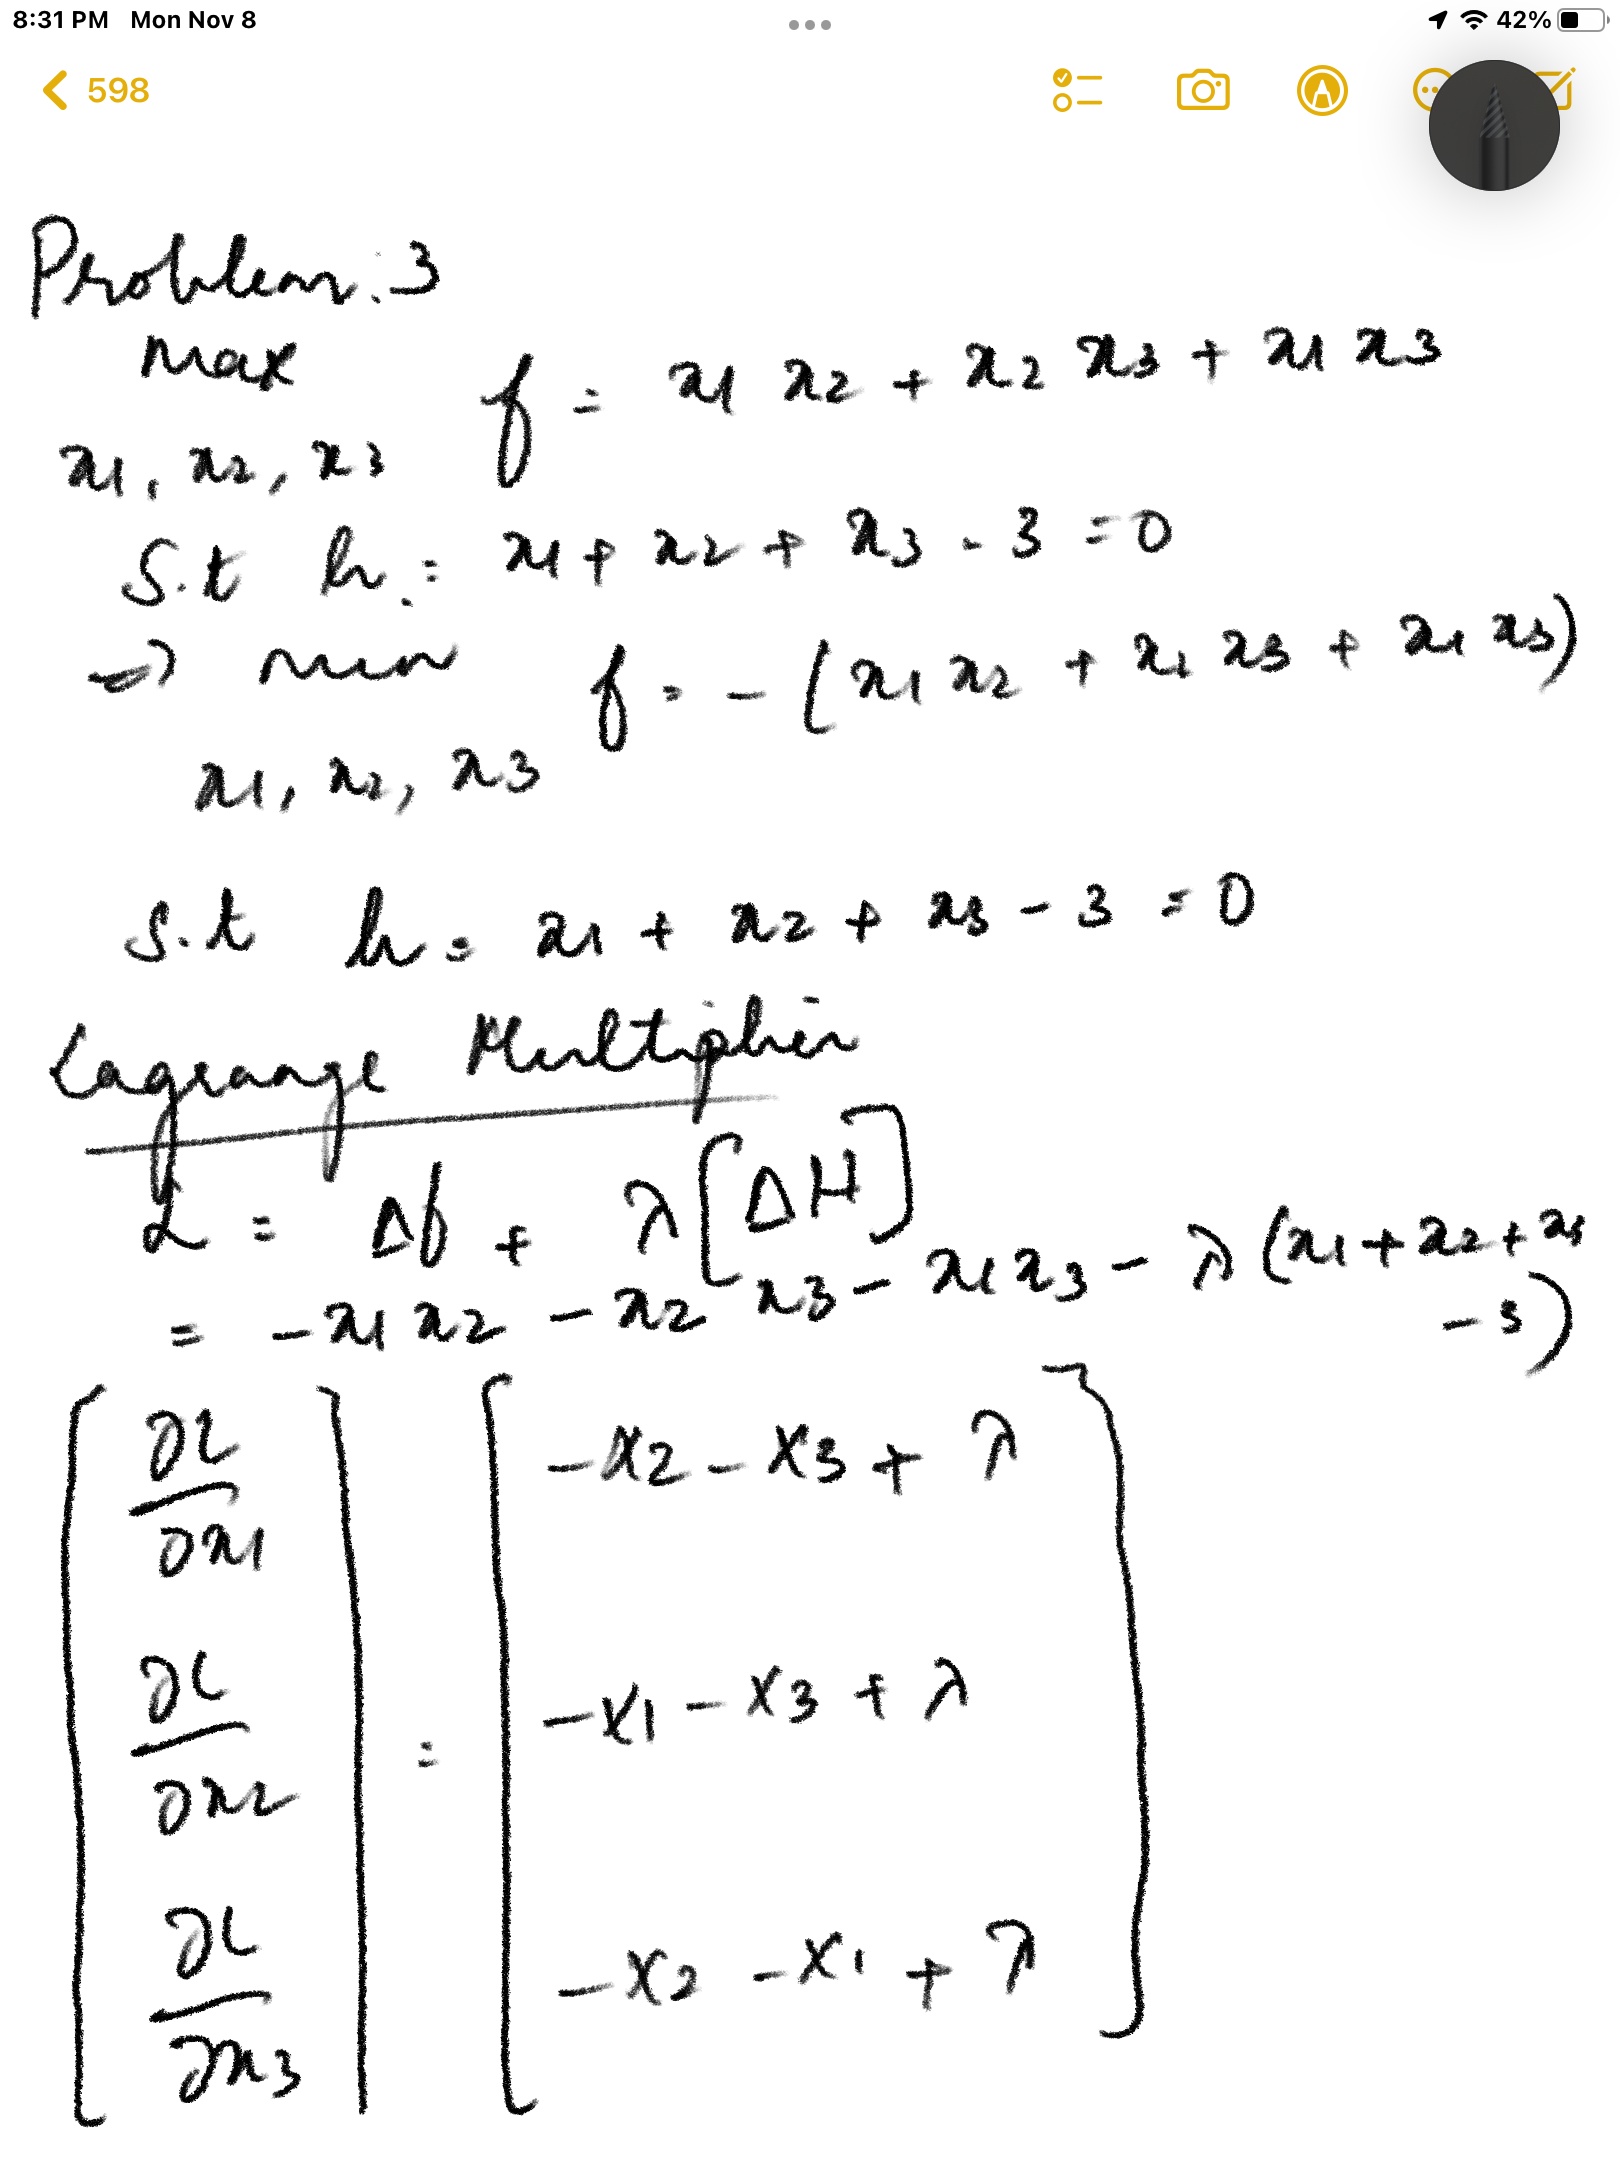 8:31 PM Mon Nov 8 42%
598
Problem:3
max f = x1 x2 + x2 x3 + x1 x3
x1, x2, x3
S.t h = x1 + x2 + x3 - 3 = 0
⇒ min f = - (x1 x2 + x1 x3 + x1 x3)
x1, x2, x3
S.t h = x1 + x2 + x3 - 3 = 0
Lagrange Multiplier
L = Δf + λ[ΔH]
= -x1 x2 - x2 x3 - x1 x3 - λ (x1 + x2 + x3
- 3)
∂L/∂x1 = -x2 - x3 + λ
∂L/∂x2 = -x1 - x3 + λ
∂L/∂x3 = -x2 - x1 + λ